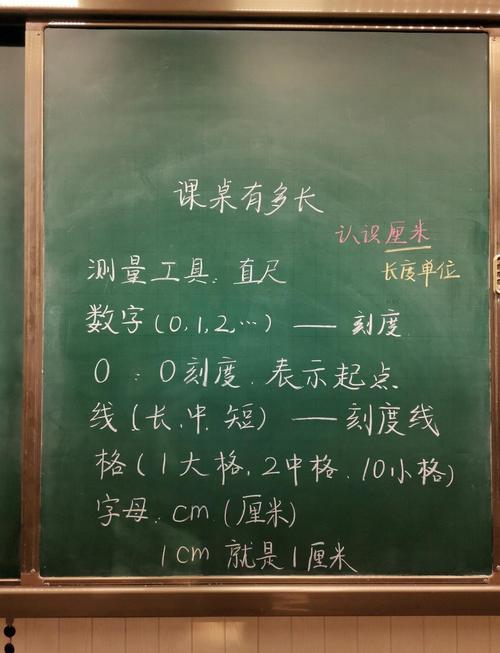 课桌有多长
认识厘米
测量工具:直尺
长度单位
数字(0,1,2,…)——刻度
0:0刻度.表示起点
线(长.中.短)——刻度线
格(1大格,2中格.10小格)
字母:cm(厘米)
1cm就是1厘米